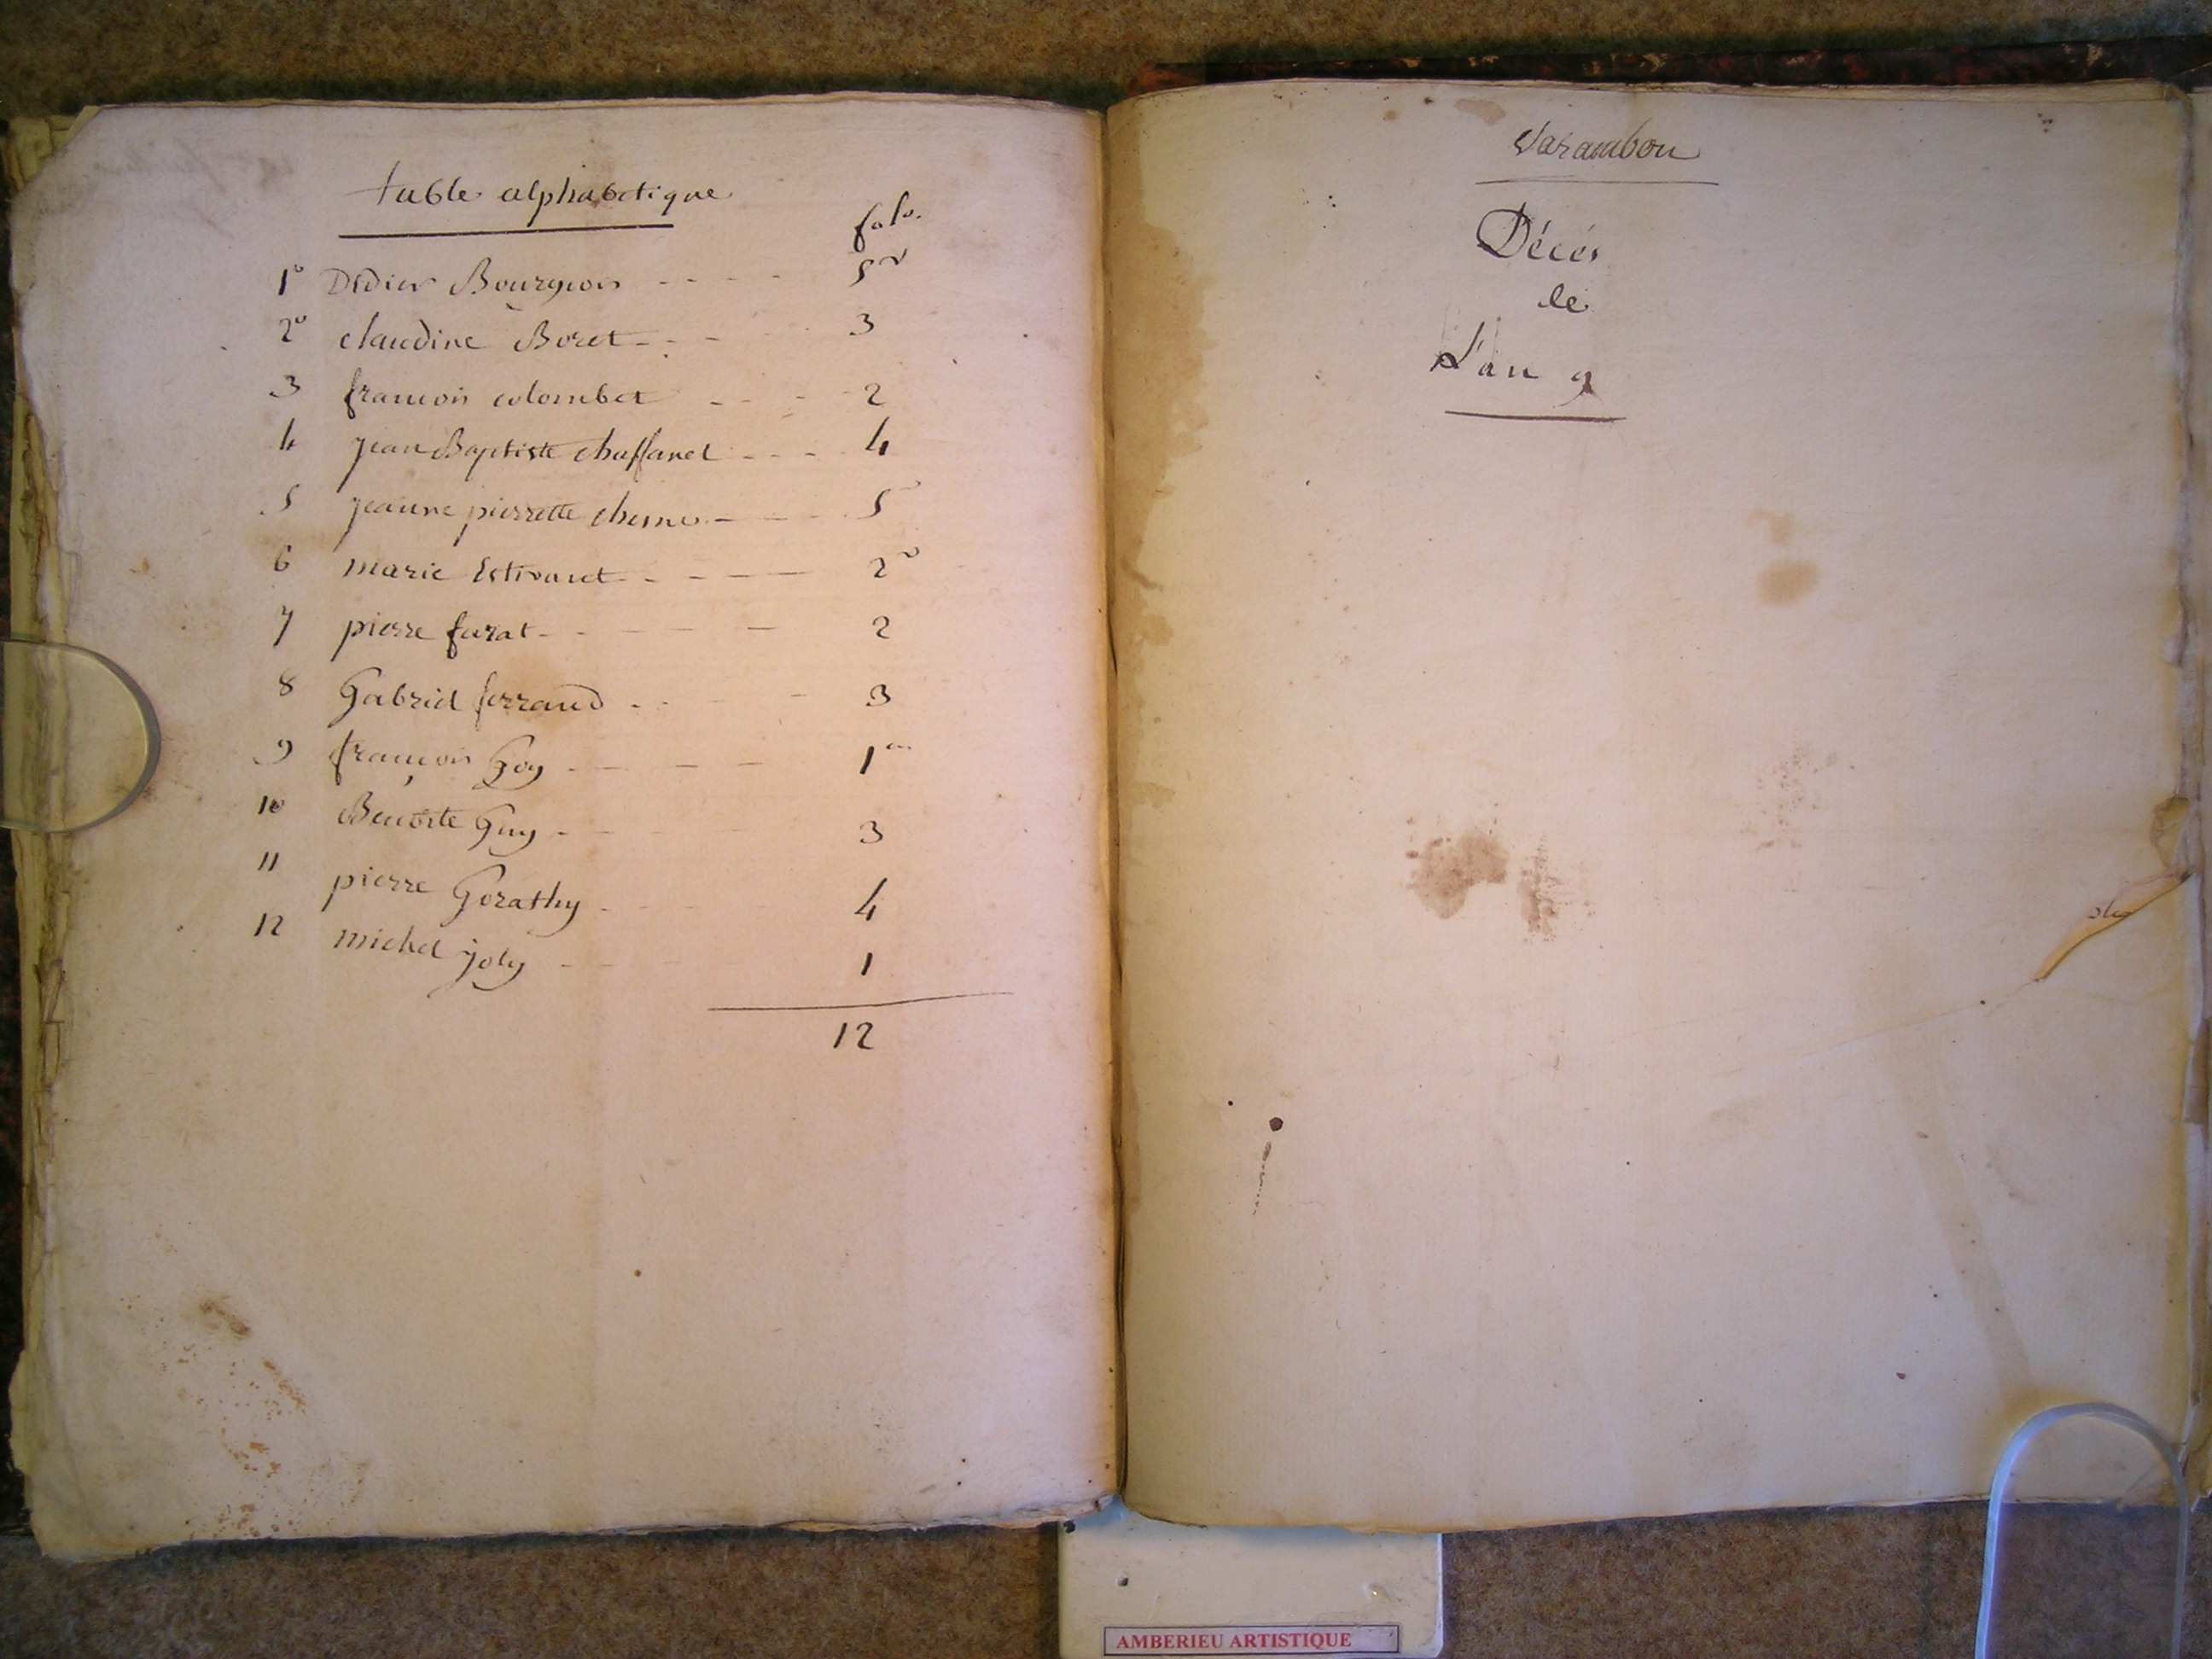 table alphabetique
folo.
1° Didier Bourgeois - - - - 5 v
2° claudine Boret - - - 3
3 francois colombet - - - 2
4 jean Baptiste chaffanel - - - 4
5 jeanne pierrette - - 5
6 marie Estivant - - - - 2 v
7 pierre furat - - - - - 2
8 Gabriel ferrand - - - 3
9 françois Goy - - - - 1
10 Benoite Guy - - - 3
11 pierre Gorathy - - - 4
12 michel joly - - - 1
12
Varambon
Décés
de
L'an 9
AMBERIEU ARTISTIQUE